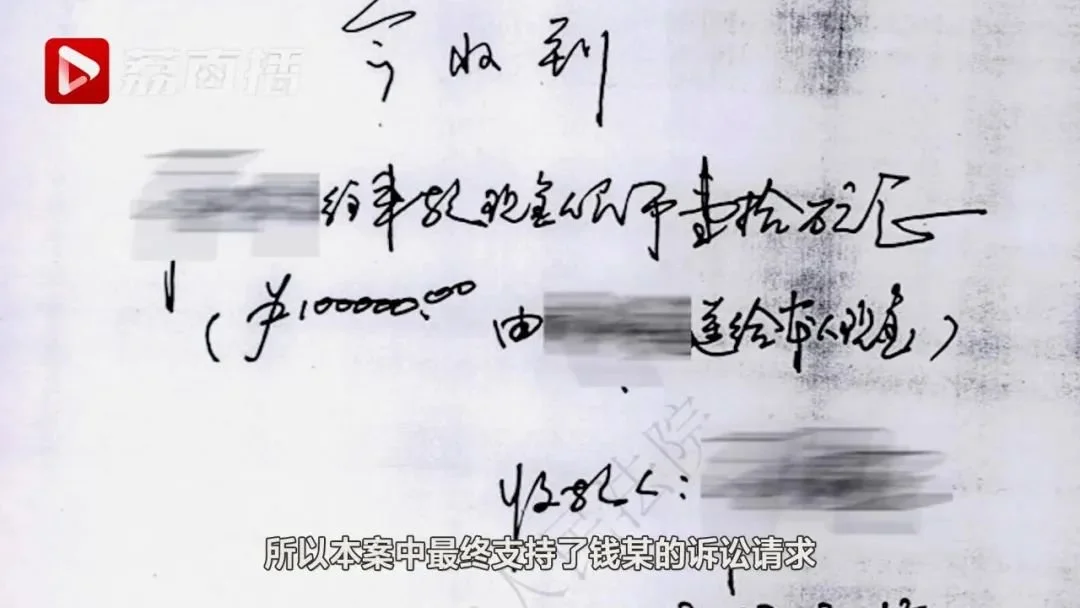 荔直播
今收到
给来款现金人民币壹拾万元正
(¥100000.00 由
送给本人现金)
收款人:
人民法院
所以本案中最终支持了钱某的诉讼请求